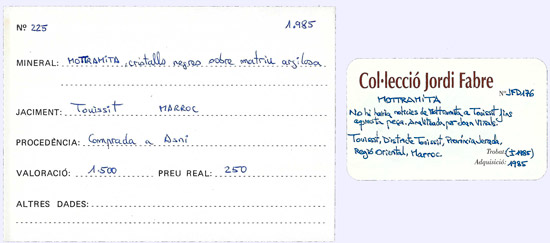 Nº 225 1.985
MINERAL: MOTTRAMITA, cristalls negres sobre matriu argilosa
JACIMENT: Touissit MARROC
PROCEDÈNCIA: Comprada a Asni
VALORACIÓ: 1.500 PREU REAL: 250
ALTRES DADES:
Col·lecció Jordi Fabre
Nº JFD176
MOTTRAMITA
No hi havia notícies de Mottramita a Touissit fins
aquesta peça. Analitzada per Joan Viñals.
Touissit, Districte Touissit, Província Jerada,
Regió Oriental, Marroc.
Trobat: (± 1985)
Adquisició: 1985